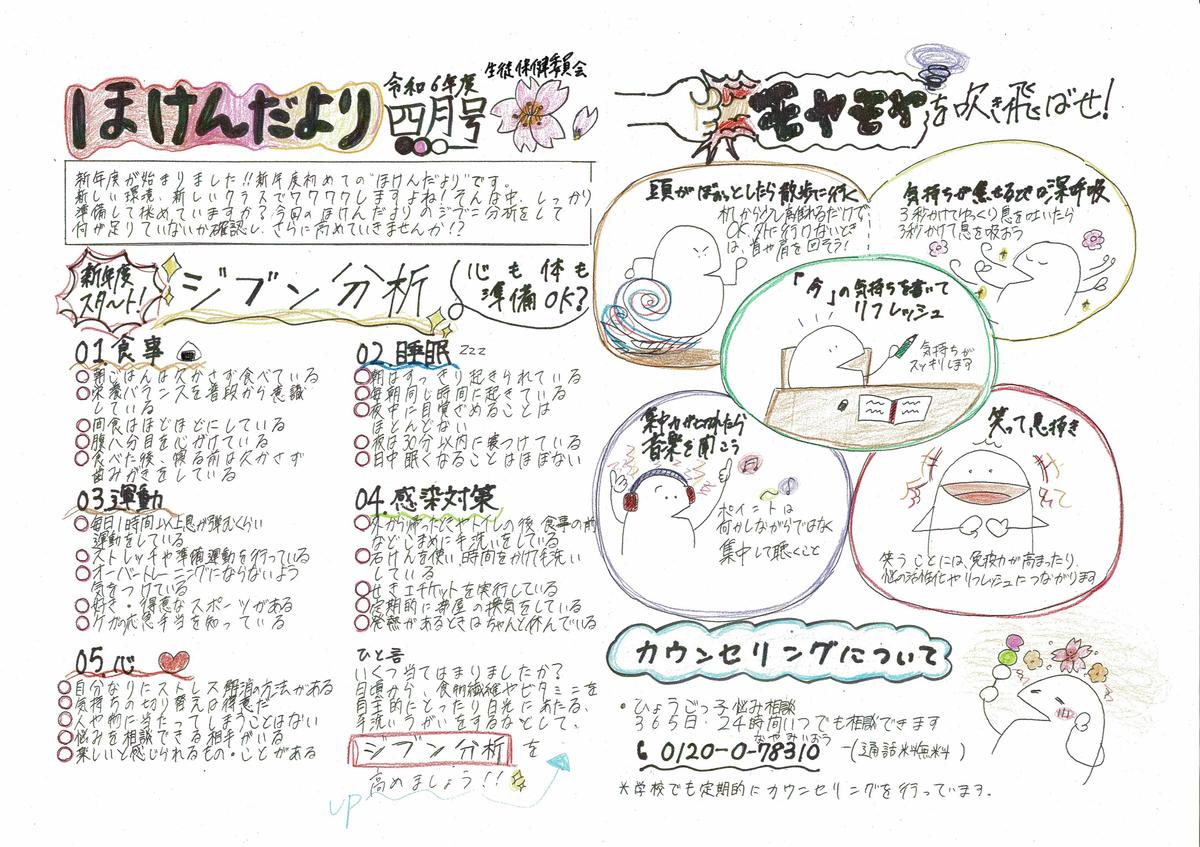 ほけんだより
令和6年度
四月号
生徒保健委員会
新年度が始まりました!!新年度初めての"ほけんだより"です。
新しい環境、新しいクラスでワクワクしますよね!そんな中、しっかり
準備して挑めていますか?今回のほけんだよりのジブン分析をして
何が足りていないか確認し、さらに高めていきませんか!?
新年度
スタート!
ジブン分析
心も体も
準備OK?
01.食事
朝ごはんは欠かさず食べている
栄養バランスを普段から意識
している
間食はほどほどにしている
腹八分目を心がけている
食べた後、寝る前は欠かさず
歯みがきをしている
02 睡眠 zzz
朝はすっきり起きられている
毎朝同じ時間に起きている
夜中に目覚ざめることは
ほとんどない
夜は30分以内に寝つけている
日中眠くなることはほぼない
03.運動
毎日1時間以上息が弾むくらい
運動をしている
ストレッチや準備運動を行っている
オーバートレーニングにならないよう
気をつけている
好き・得意なスポーツがある
ケガの応急手当を知っている
04.感染対策
外から帰ったときやトイレの後、食事の前
などこまめに手洗いをしている
石けんを使い、時間をかけて手洗い
している
せきエチケットを実行している
定期的に部屋の換気をしている
発熱があるときはちゃんと休んでいる
05 心
自分なりにストレス解消の方法がある
気持ちの切り替えは得意だ
人や物に当たってしまうことはない
悩みを相談できる相手がいる
楽しいと感じられるもの・ことがある
ひと言
いくつ当てはまりましたか?
日頃から、食物繊維やビタミンを
自主的にとったり日光にあたる、
手洗いうがいをするなどして、
ジブン分析を
高めましょう!!
up
モヤモヤを吹き飛ばせ!
頭がぼぉっとしたら散歩に行く
机から少し離れるだけで
OK.外に行けないとき
は、首や肩を回そう!
気持ちが焦せるときは深呼吸
3秒かけてゆっくり息を吐いたら
3秒かけて息を吸おう
「今」の気持ちを書いて
リフレッシュ
気持ちが
スッキリします
集中力がとぎれたら
音楽を聞こう
ポイントは
何かしながらではなく
集中して聴くこと
笑って息抜き
笑うことには、免疫力が高まったり、
脳の活性化やリフレッシュにつながります
カウンセリングについて
・ひょうごっ子悩み相談
365日・24時間いつでも相談できます
なやみいおう
0120-0-78310 -(通話料無料)
*学校でも定期的にカウンセリングを行っています。